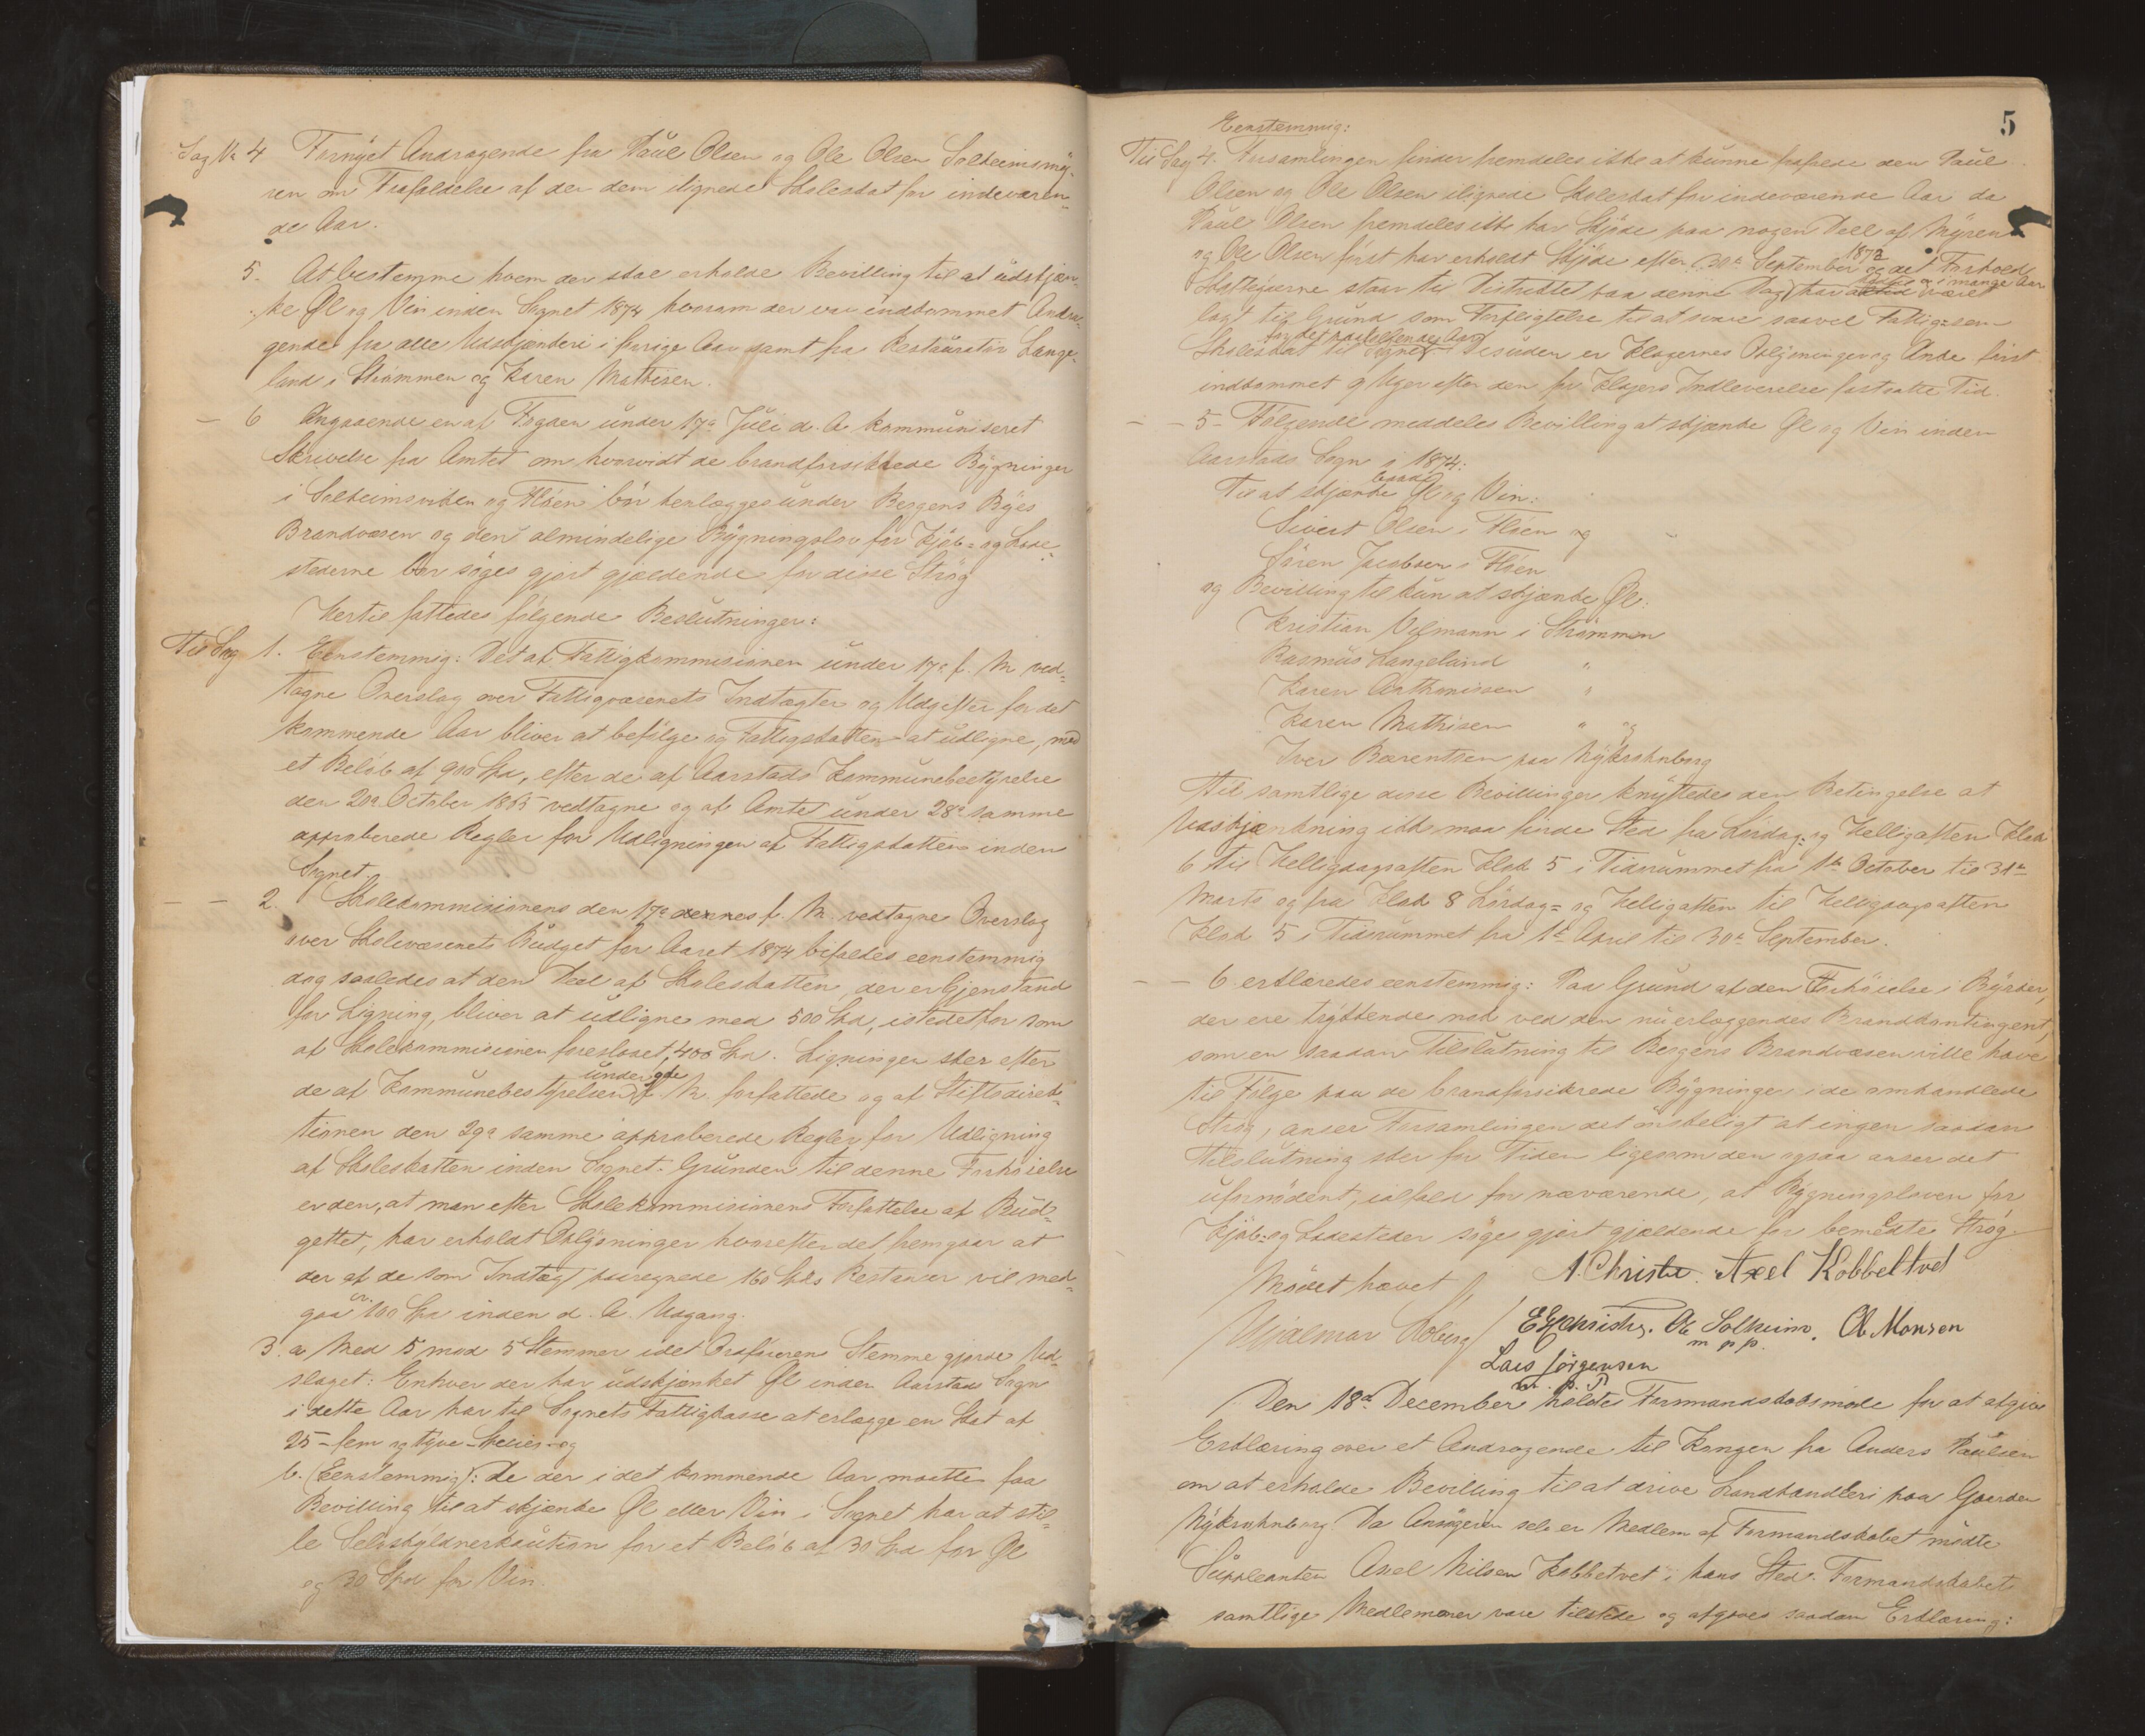 Sag No 4 Fornyet Andragende fra Paul Olsen og Ole Olsen Solheimsmy-
ren om Frafaldelse af der dem ilignede Skoleskat for indeværen-
de Aar.
5. At bestemme hvem der skal erholde Bevilling til at udskjæn-
ke Øl og Vin inden Sognet 1874 hvorom der var indkommet Andra-
gende fra alle Udskjænkere i forrige Aar samt fra Restauratør Lange-
land i Strømmen og Karen Mathisen.
- 6 Angaaende en af Fogden under 17de Juli d. A. kommuniseret
Skrivelse fra Amtet om hvorvidt de brandforsikrede Bygninger
i Solheimsviken og Fløen bør henlægges under Bergens Byes
Brandvæsen og den almindelige Bygningslov for Kjøb- og Lade-
stederne bør søges gjort gjældende for disse Strøg
Hertil fattedes følgende Beslutninger:
Til Sag 1. Eenstemmig: Det af Fattigkommisionen under 17de f. M. ved-
tagne Overslag over Fattigvæsenets Indtægter og Udgifter for det
kommende Aar bliver at befølge og Fattigskatten at udligne, med
et Beløb af 900 Spd, efter de af Aarstads Kommunebestyrelse
den 20de October 1865 vedtagne og af Amtet under 28de samme
approberede Regler for Udligningen af Fattigskatten inden
Sognet.
- - 2. Skolekommisionens den 17de dennes f. M. vedtagne Overslag
over Skolevæsenets Budget for Aaret 1874 befaldes eenstemmig
dog saaledes at den Deel af Skoleskatten, der er Gjenstand
for Ligning, bliver at udligne med 500 Spd, istedetfor som
af Skolekommisionen foreslaaet, 400 Spd. Ligningen sker efter
under 9de
de af Kommunebestyrelsen f. M. forfattede og af Stiftsdirek-
tionen den 29de samme approberede Regler for Udligning
af Skoleskatten inden Sognet. Grunden til denne Forhøielse
er den, at man efter Skolekommisionens Forfattelse af Bud-
gettet, har erholdt Oplysninger hvorefter det fremgaar at
der af de som Indtægt paaregnede 160 Spds Restancer vil med-
gaa 100 Spd inden d. A. Udgang.
3. a. Med 5 mod 5 Stemmer idet Ordførerens Stemme gjorde Ud-
slaget: Enhver der har udskjænket Øl inden Aarstad Sogn
i dette Aar har til Sognets Fattigkasse at erlægge en Skat af
25 - fem og tyve - Specier og
b. (Eenstemmig): De der i det kommende Aar maatte faa
Bevilling til at skjænke Øl eller Vin i Sognet har at stil-
le Selvskyldnerkaution for et Beløb af 30 Spd for Øl
og 30 Spd for Vin.
5
Eenstemmig:
Til Sag 4. Forsamlingen finder fremdeles ikke at kunne frafalde den Paul
Olsen og Ole Olsen ilignede Skoleskat for indeværende Aar da
Paul Olsen fremdeles ikke har Skjøde paa nogen Deel af Myren
og Ole Olsen først har erholdt Skjøde efter 30te September 1872 og det Forhold
Skatteyderne staar til Distriktet paa denne Dag har i mange Aar været
lagt til Grund som Forpligtelse til at svare saavel Fattig- som
for det paafølgende Aar
Skoleskat til Sognet. Desuden er Klagernes Oplysninger og Anke først
indkommet 9 Uger efter den for Klagers Indleverelse fastsatte Tid.
- - 5 - Følgende meddeles Bevilling at skjænke Øl og Vin inden
Aarstads Sogn i 1874:
Til at skjænke baade Øl og Vin:
Sivert Olsen i Fløen og
Søren Jacobsen i Fløen
og Bevilling til kun at skjænke Øl:
Kristian Vilmann i Strømmen
Rasmus Langeland "
Karen Anthonissen "
Karen Mathisen " og
Iver Bærentsen paa Nykrohnborg
Til samtlige disse Bevillinger knyttedes den Betingelse at
Udskjænkning ikke maa finde Sted fra Lørdag- og Helligaften Klok
6 til Helligdagsaften Klok 5 i Tidsrummet fra 1ste October til 31te
Marts og fra Klok 8 Lørdag- og Helligaften til Helligdagsaften
Klok 5 i Tidsrummet fra 1ste April til 30te September.
- - 6 erklæredes eenstemmig: Paa Grund af den Forhøielse i Byrder,
der ere trykkende nok ved den nu erlæggendes Brandkontingent,
som en saadan Tilslutning til Bergens Brandvæsen ville have
til Følge paa de brandforsikrede Bygninger i de omhandlede
Strøg, anser Forsamlingen det ønskeligt at ingen saadan
Tilslutning sker for Tiden ligesom den ogsaa anser det
ufornødent, ialfald for nærværende, at Bygningsloven for
Kjøb- og Ladesteder søges gjort gjældende for bemeldte Strøg.
Mødet hævet A. Christie. Axel Kobbeltvet
Hjalmar Løberg E. Christie. Ole Solheim. O. Monsen
m p p.
Lars Jørgensen
m. p. P.
Den 18de December holdtes Formandskabsmøde for at afgive
Erklæring over et Andragende til Kongen fra Anders Paulsen
om at erholde Bevilling til at drive Landhandleri paa Gaarden
Nykrohnborg. Da Ansøgeren selv er Medlem af Formandskabet mødte
Supleanten Axel Nilsen Kobbeltvet i hans Sted. Formandskabets
samtlige Medlemmer vare tilstede og afgaves saadan Erklæring: